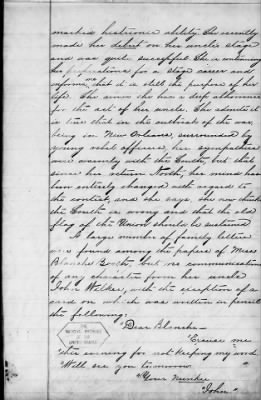 marked histrionic ability. She recently
made her debut on her uncle's stage
and was quite successful. She is continuing
her preparations for a stage career and
informs me that it is still the purpose of her
life. She says she has a deep abhorrence
for the act of her uncle. She admits it
is true that in the outbreak of the war,
being in New Orleans, surrounded by
young rebel officers, her sympathies
were warmly with the South, but that
since her return North, her mind has
been entirely changed with regard to
the contest, and she says, she now thinks
the South is wrong and that the old
flag of the Union should be sustained
A large number of family letters
was found among the papers of Miss
Blanche Booth, but no communication
of any character from her uncle
John Wilkes, with the exception of a
card on which was written in pencil
the following:
"Dear Blanche—
"Excuse me
this evening for not keeping my word
Will see you tomorrow.
"Your Nunkee
"John"